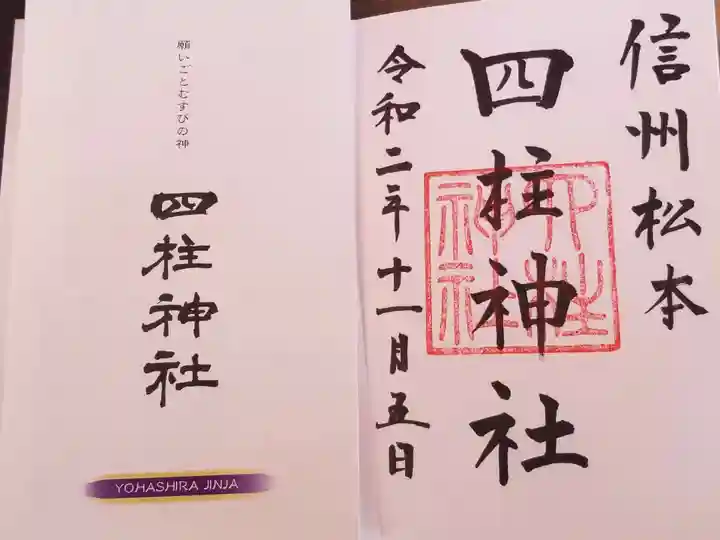 願いごとむすびの神
四柱神社
YOHASHIRA JINJA
信州松本
四柱神社
四柱神社
令和二年十一月五日